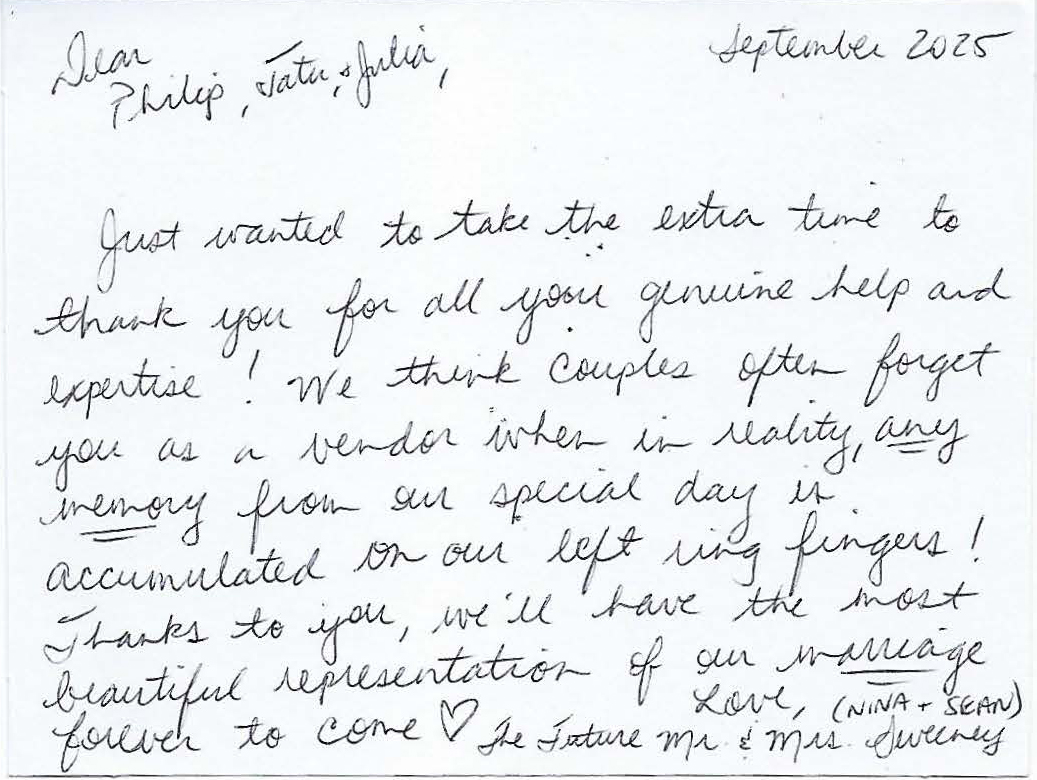 September 2025
Dear
Philip, Tatu, + Julia,
Just wanted to take the extra time to
thank you for all your genuine help and
expertise! We think couples often forget
you as a vendor when in reality, any
memory from our special day is
accumulated on our left ring fingers!
Thanks to you, we'll have the most
beautiful representation of our marriage
forever to come ♡ Love, (NINA + SEAN)
The Future Mr. & Mrs. Sweeney